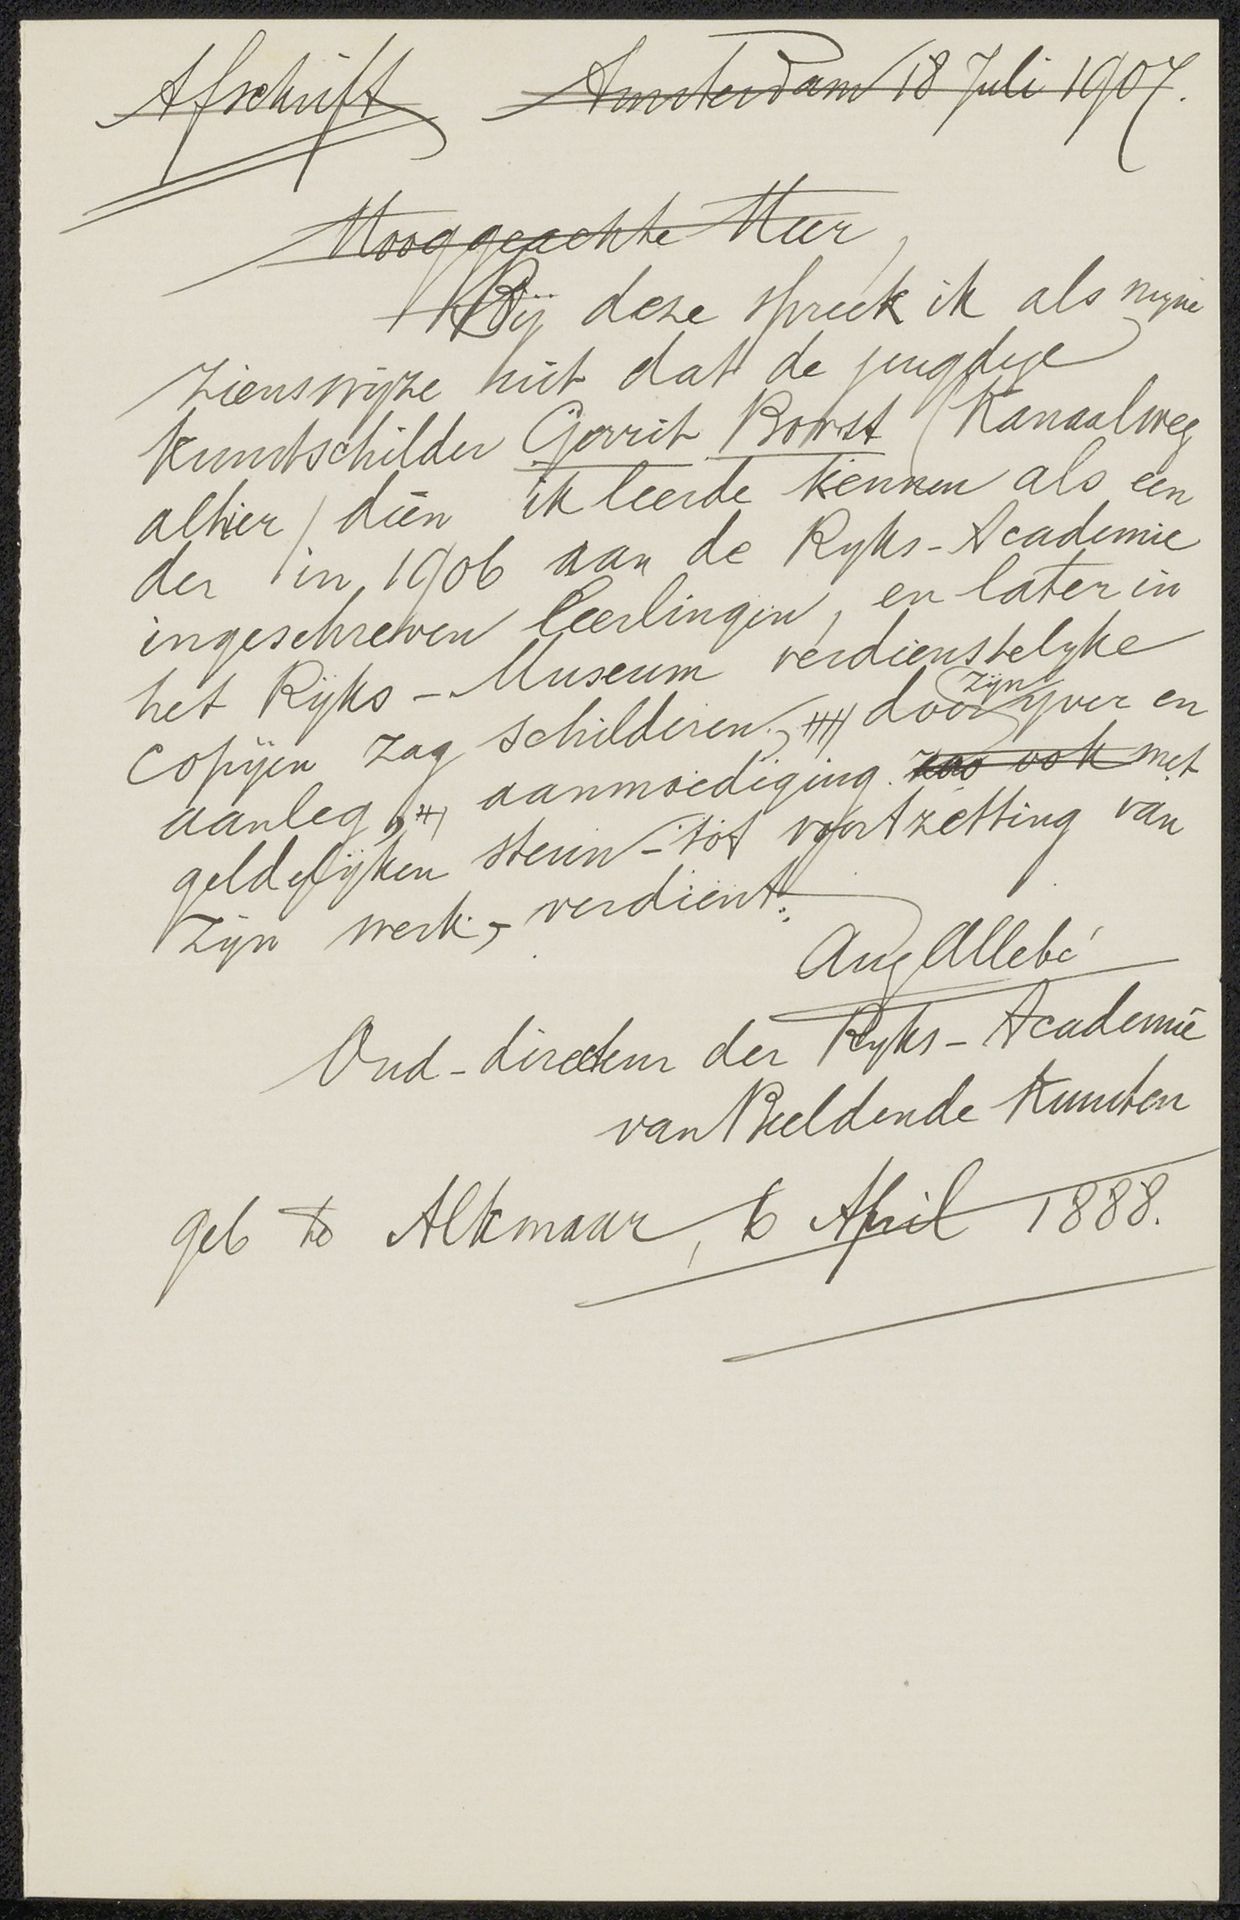 Afschrift Amsterdam 18 Juli 1907.
Hooggeachte Heer,
Bij deze spreek ik als mijne
zienswijze uit dat de jeugdige
Kunstschilder Gerrit Borst (Kanaalweg
alhier) dien ik leerde kennen als een
der in 1906 aan de Ryks-Academie
ingeschreven leerlingen, en later in
het Rijks-Museum verdienstelyke
copijen zag schilderen, door zijn yver en
aanleg, aanmoediging zoo ook met
geldelijken steun - tot voortzetting van
zijn werk, verdient.
Aug Allebé
Oud-directeur der Ryks-Academie
van Beeldende Kunsten
geb te Alkmaar, 6 April 1888.